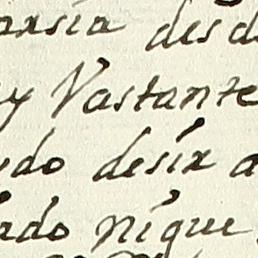 desd
y Vastante
do desix a
ado nique